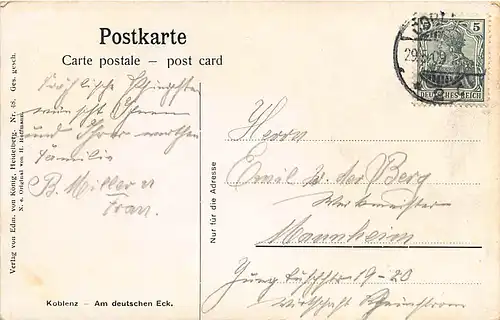 Postkarte
Carte postale – post card
Fröhliche Pfingsten
wünscht Ihnen
und Ihrer werthen
Familie
B. Miller u
Frau.
Koblenz – Am deutschen Eck.
Verlag von Edm. von König, Heidelberg. Nr. 48. Ges. gesch.
N. e. Original von H. Hoffmann.
Nur für die Adresse
5
DEUTSCHES REICH
29.5.09
Herrn
Emil v. der Berg
Werkmeister
Mannheim
19-20
Wirtschaft Rheinstrom